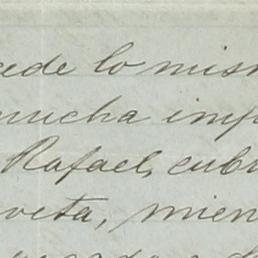 cede lo mism
mucha imp
Rafael, cubr
veta, mien